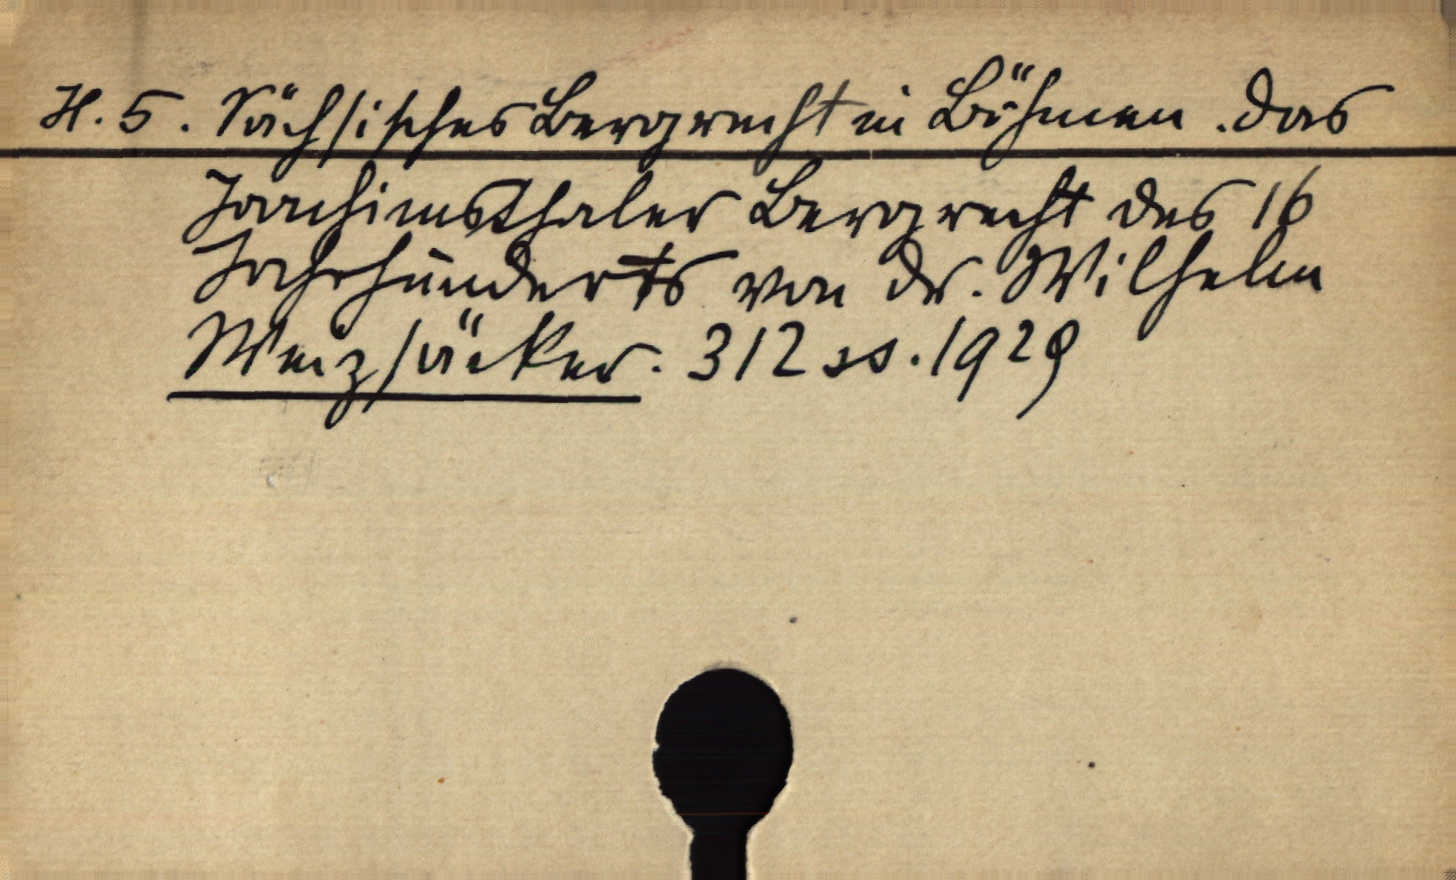 H. 5. Sächsisches Bergrecht in Böhmen. Das
Joachimsthaler Bergrecht des 16
Jahrhunderts von Dr. Wilhelm
Weizsäcker. 312 ss. 1929